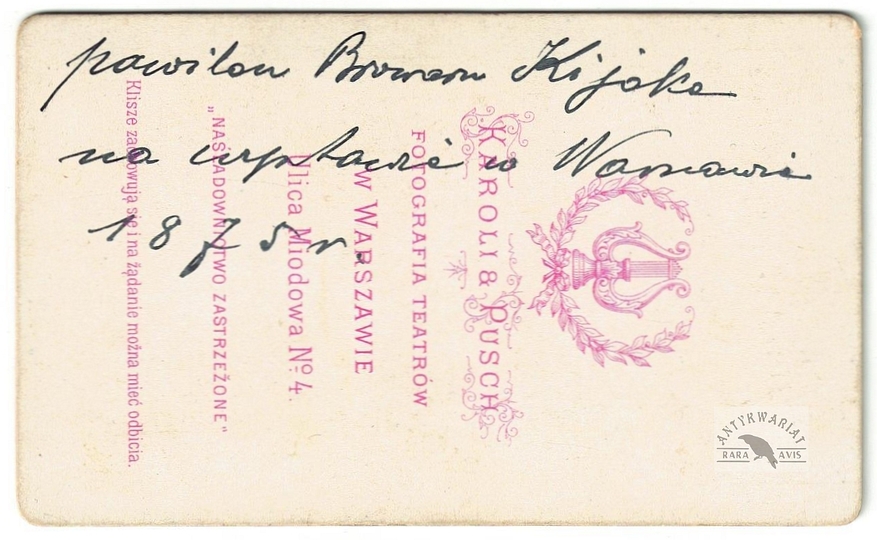 pawilon Browaru Kijoka
na wystawie w Warszawie
1875 r.
KAROLI & PUSCH
FOTOGRAFIA TEATRÓW
W WARSZAWIE
Ulica Miodowa No. 4.
„NAŚLADOWNICTWO ZASTRZEŻONE"
Klisze zachowują się i na żądanie można mieć odbicia.
ANTYKWARIAT
RARA AVIS